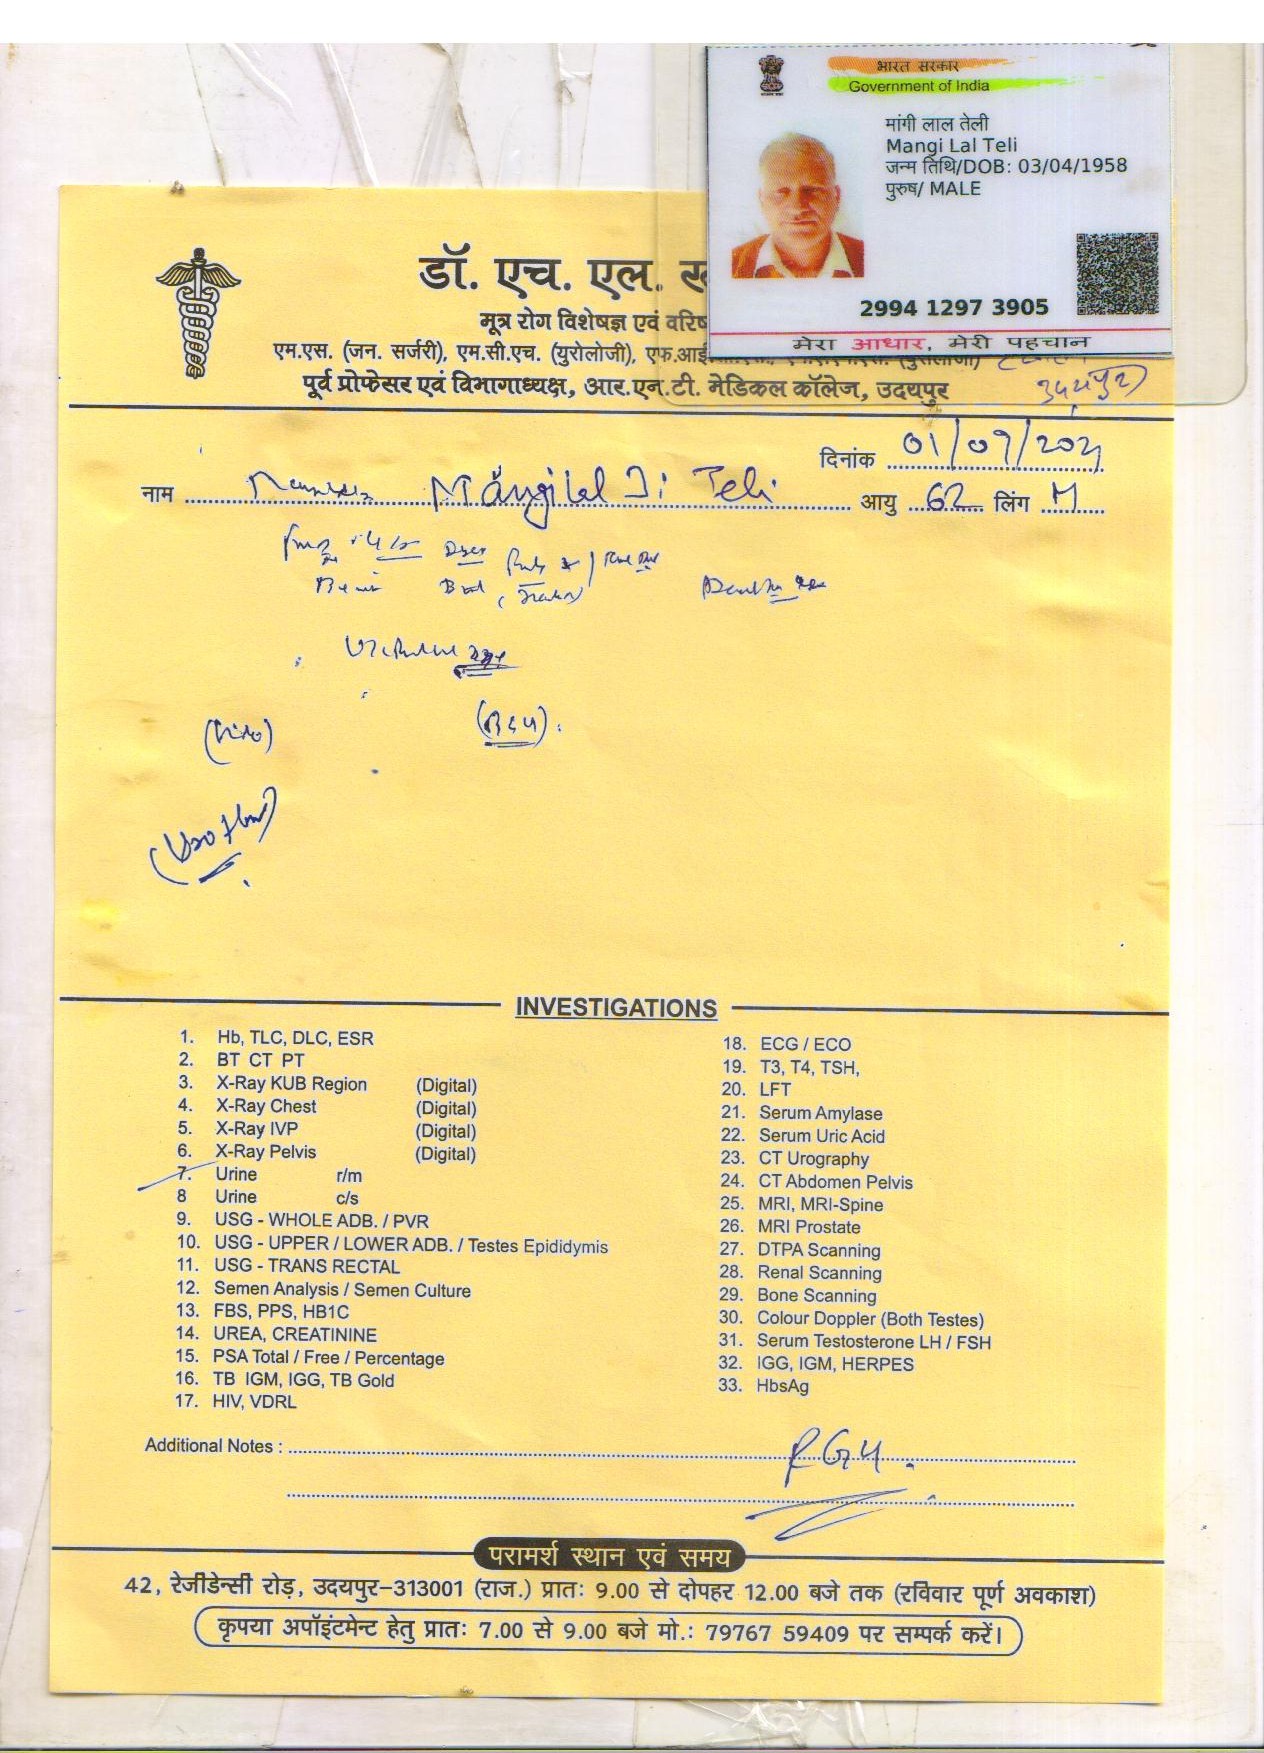 भारत सरकार
Government of India
मांगी लाल तेली
Mangi Lal Teli
जन्म तिथि/DOB: 03/04/1958
पुरुष/ MALE
2994 1297 3905
मेरा आधार, मेरी पहचान
डॉ. एच. एल.
मूत्र रोग विशेषज्ञ एवं
एम.एस. (जन. सर्जरी), एम.सी.एच. (युरोलोजी),
पूर्व प्रोफेसर एवं विभागाध्यक्ष, आर.एन.टी. मेडिकल कॉलेज, उदयपुर
उदयपुर
दिनांक 01/09/2021
नाम Mangilal Ji Teli आयु 62 लिंग M
INVESTIGATIONS
1. Hb, TLC, DLC, ESR
2. BT CT PT
3. X-Ray KUB Region (Digital)
4. X-Ray Chest (Digital)
5. X-Ray IVP (Digital)
6. X-Ray Pelvis (Digital)
7. Urine r/m
8 Urine c/s
9. USG - WHOLE ADB. / PVR
10. USG - UPPER / LOWER ADB. / Testes Epididymis
11. USG - TRANS RECTAL
12. Semen Analysis / Semen Culture
13. FBS, PPS, HB1C
14. UREA, CREATININE
15. PSA Total / Free / Percentage
16. TB IGM, IGG, TB Gold
17. HIV, VDRL
18. ECG / ECO
19. T3, T4, TSH,
20. LFT
21. Serum Amylase
22. Serum Uric Acid
23. CT Urography
24. CT Abdomen Pelvis
25. MRI, MRI-Spine
26. MRI Prostate
27. DTPA Scanning
28. Renal Scanning
29. Bone Scanning
30. Colour Doppler (Both Testes)
31. Serum Testosterone LH / FSH
32. IGG, IGM, HERPES
33. HbsAg
Additional Notes : RGU.
परामर्श स्थान एवं समय
42, रेजीडेन्सी रोड़, उदयपुर-313001 (राज.) प्रातः 9.00 से दोपहर 12.00 बजे तक (रविवार पूर्ण अवकाश)
कृपया अपॉइंटमेन्ट हेतु प्रातः 7.00 से 9.00 बजे मो.: 79767 59409 पर सम्पर्क करें।